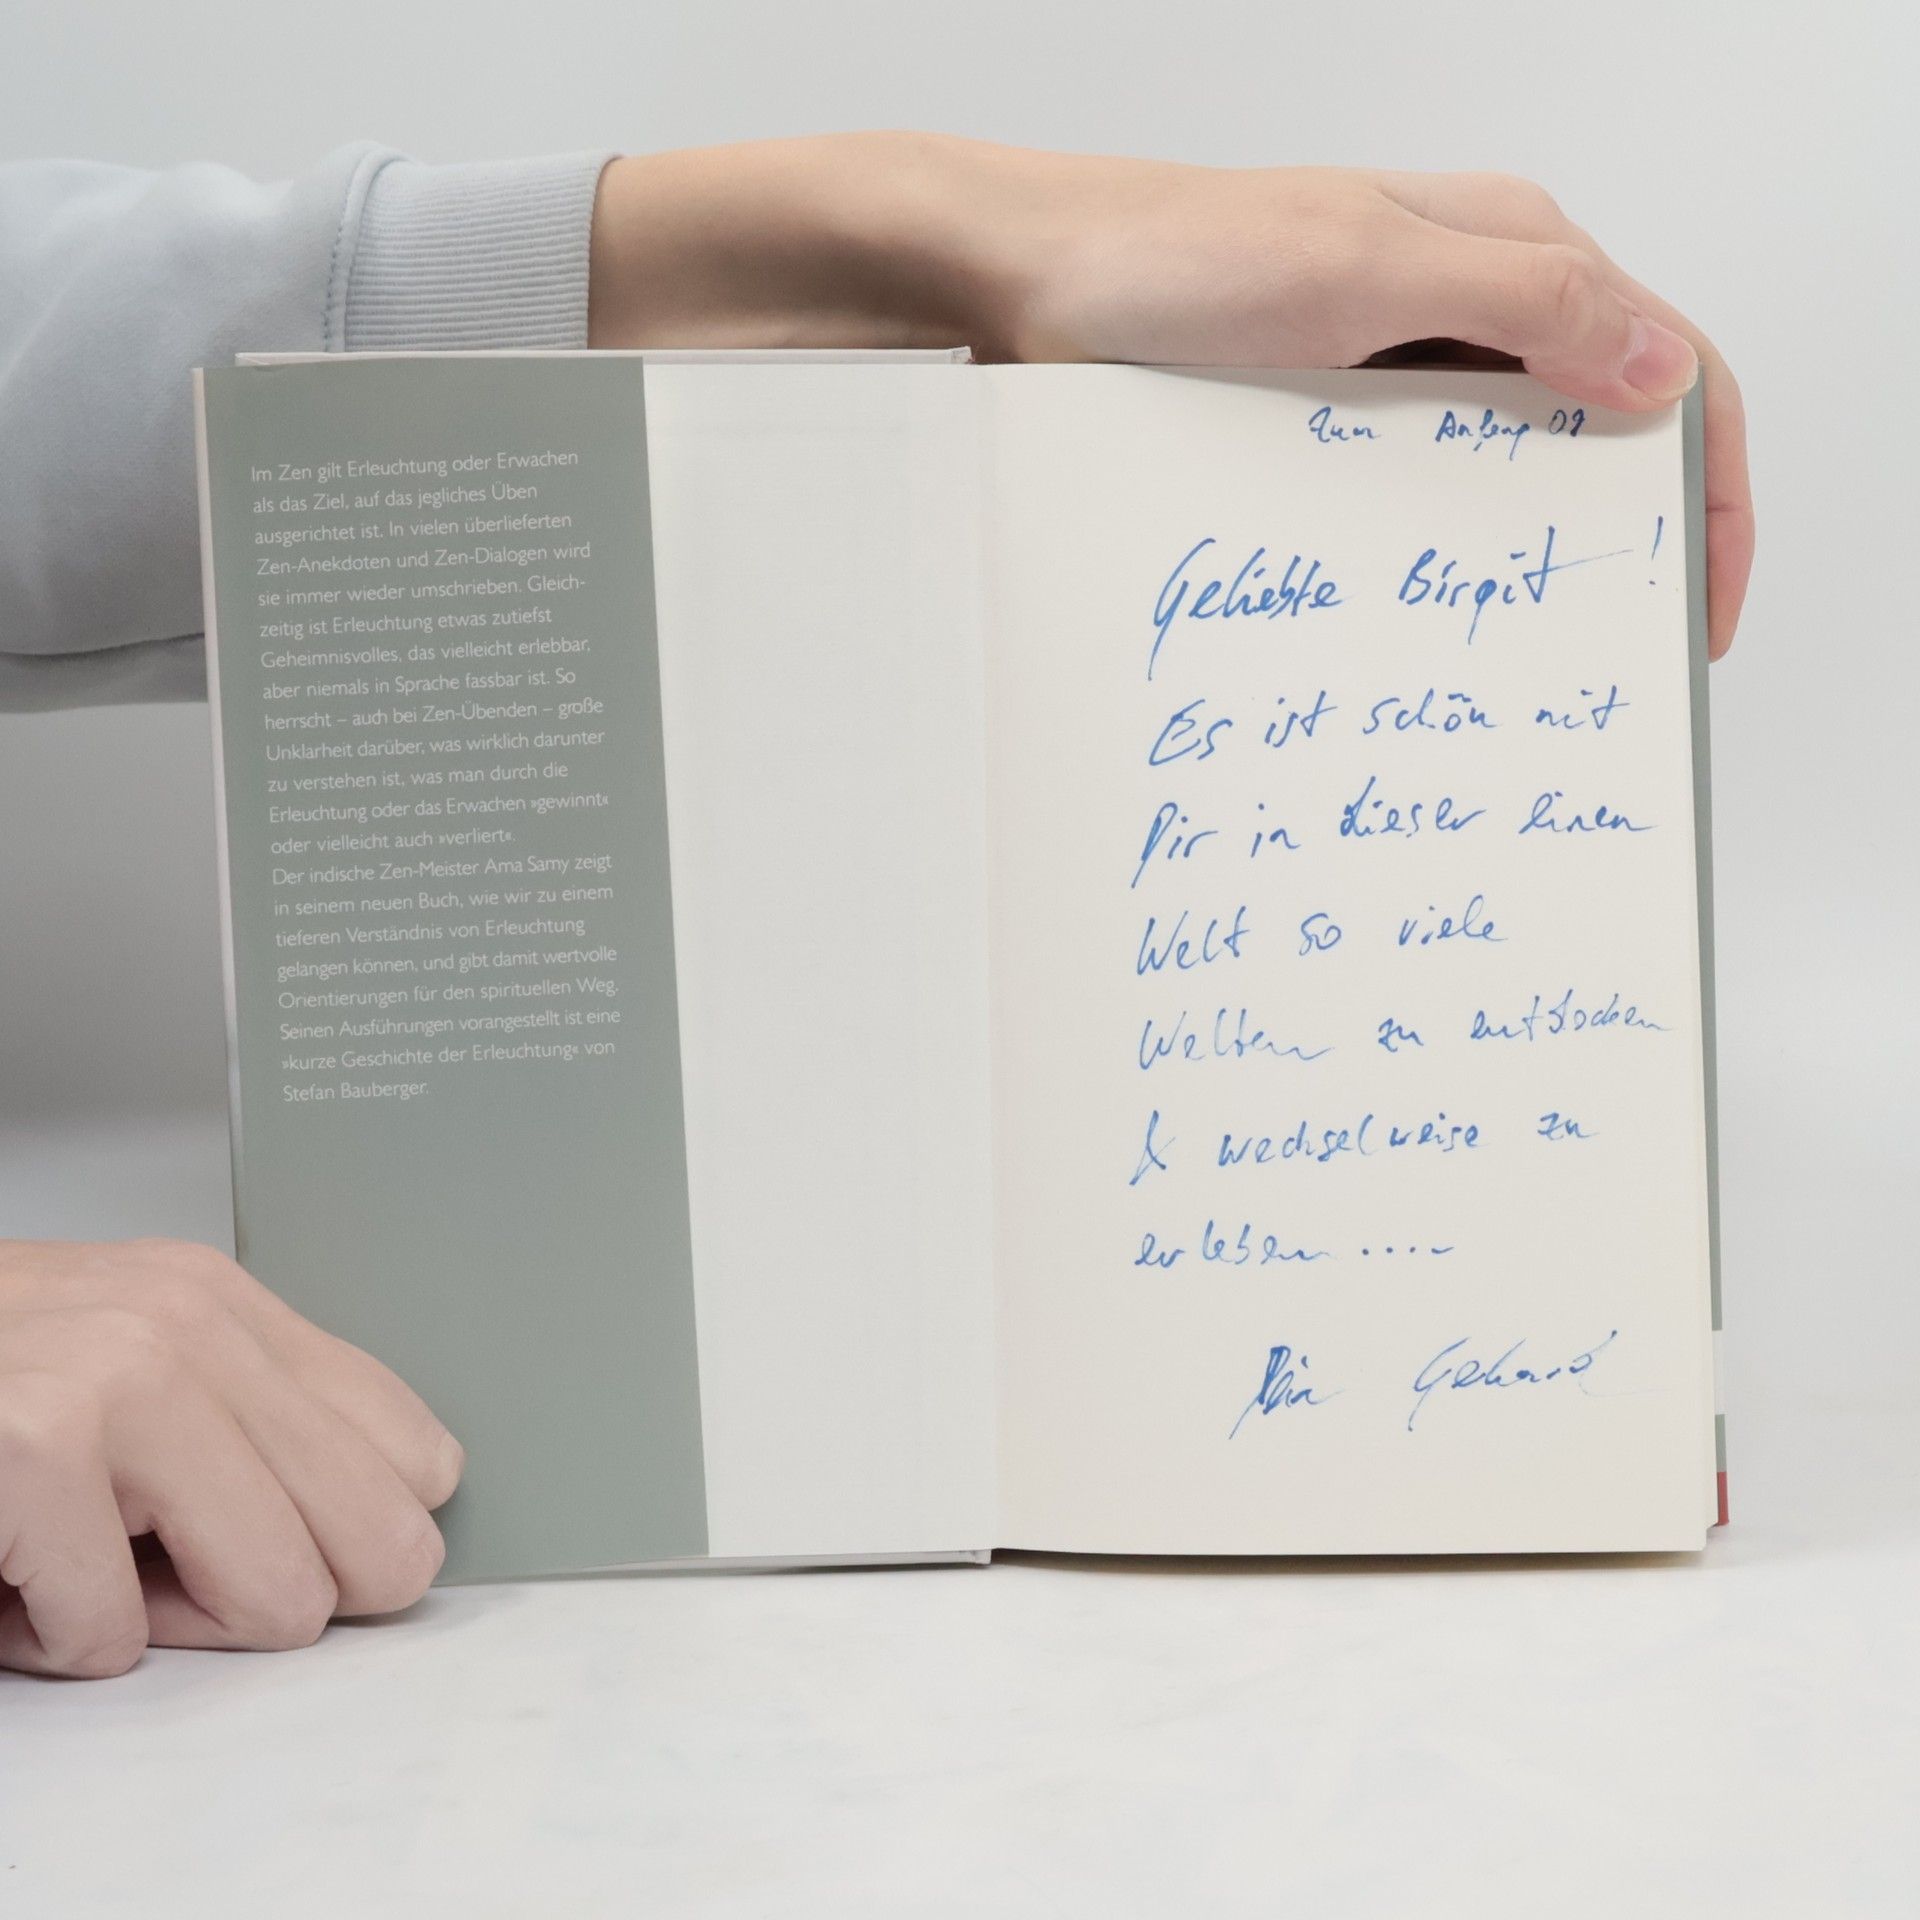 Im Zen gilt Erleuchtung oder Erwachen
als das Ziel, auf das jegliches Üben
ausgerichtet ist. In vielen überlieferten
Zen-Anekdoten und Zen-Dialogen wird
sie immer wieder umschrieben. Gleich-
zeitig ist Erleuchtung etwas zutiefst
Geheimnisvolles, das vielleicht erlebbar,
aber niemals in Sprache fassbar ist. So
herrscht – auch bei Zen-Übenden – große
Unklarheit darüber, was wirklich darunter
zu verstehen ist, was man durch die
Erleuchtung oder das Erwachen »gewinnt«
oder vielleicht auch »verliert«.
Der indische Zen-Meister Ama Samy zeigt
in seinem neuen Buch, wie wir zu einem
tieferen Verständnis von Erleuchtung
gelangen können, und gibt damit wertvolle
Orientierungen für den spirituellen Weg.
Seinen Ausführungen vorangestellt ist eine
»kurze Geschichte der Erleuchtung« von
Stefan Bauberger.
Zum Anfang 09
Geliebte Birgit!
Es ist schön mit
Dir in dieser einen
Welt so viele
Welten zu entdecken
& wechselweise zu
erleben ....
Dein Gerhard